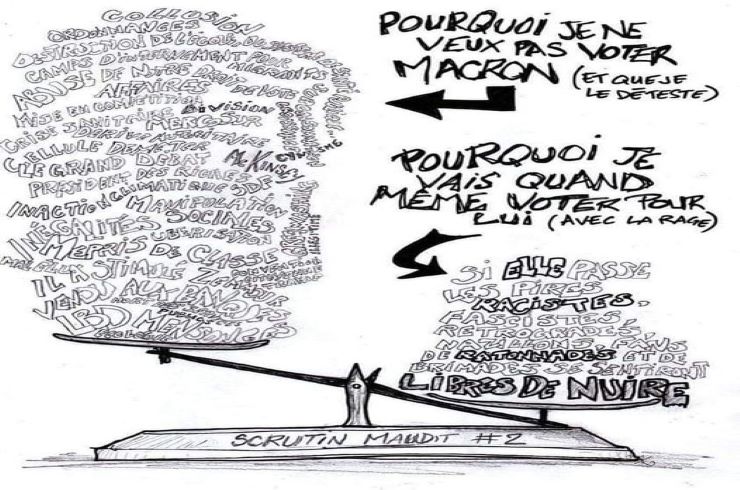 COLLUSION
ORDONNANCES
DESTRUCTION DE L'ÉCOLE
CAMPS D'INTERNEMENT POUR MIGRANTS
ABUSE DE NOTRE DROIT DE VOTE
AFFAIRES
MISE EN COMPETITION DIVISION
CRISE SANITAIRE MERCOSUR
DÉRIVE AUTORITAIRE
CELLULE DEMETER
MC KINSEY
LE GRAND DEBAT
PRÉSIDENT DES RICHES
INACTION CLIMATIQUE SDF
MANIPULATION
INÉGALITÉS SOCIALES
UBERISATION
MEPRIS DE CLASSE
IL A STIMULÉ ZEMMOUR
VENDU AUX BANQUES
LBD MENSONGES
POURQUOI JE NE
VEUX PAS VOTER
MACRON (ET QUE JE
LE DÉTESTE)
POURQUOI JE
VAIS QUAND
MÊME VOTER POUR
LUI (AVEC LA RAGE)
SI ELLE PASSE
LES PIRES
RACISTES,
FASCISTES,
RETROGRADES,
NAZILLONS, FANS
DE RATONNADES ET DE
BRIMADES SE SENTIRONT
LIBRES DE NUIRE
SCRUTIN MAUDIT #2